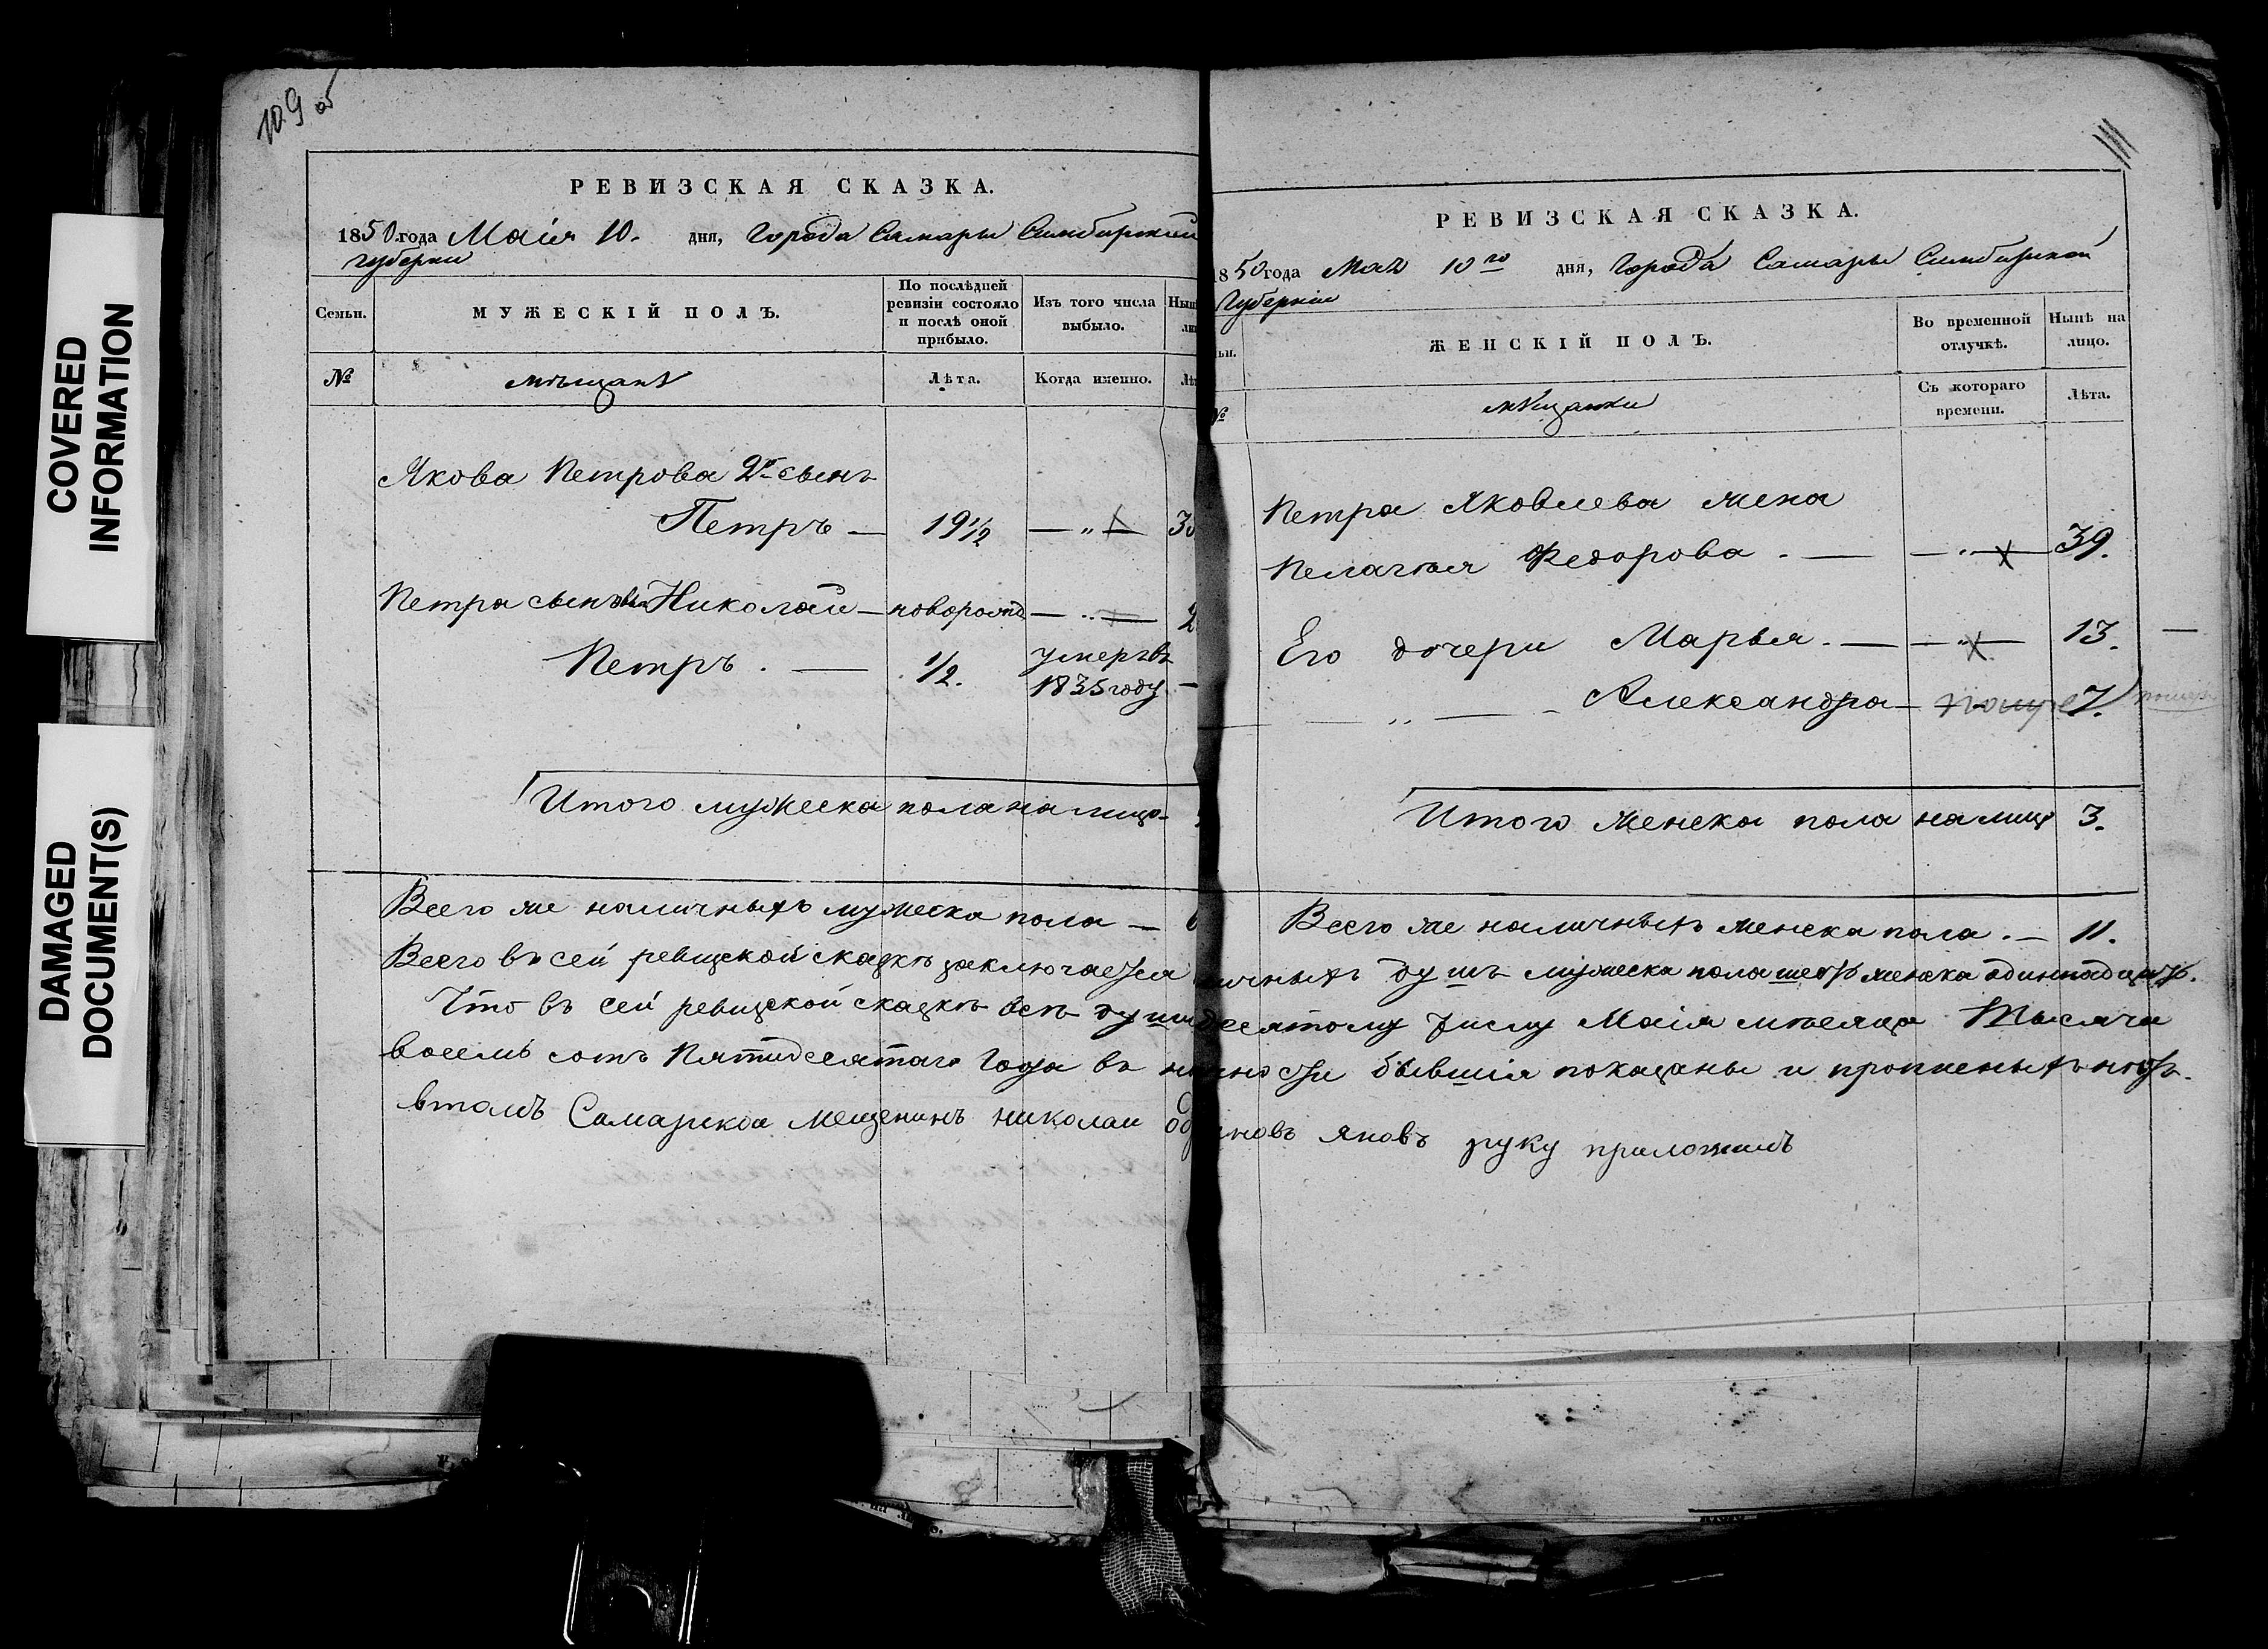 109 об
РЕВИЗСКАЯ СКАЗКА.
1850 года Маія 10. дня, Города Самары Симбирской
губерни
Семьи.
МУЖЕСКІЙ ПОЛЪ.
По послѣдней
ревизіи состояло
и послѣ оной
прибыло.
Изъ того числа
выбыло.
№
мѣщанъ
Лѣта.
Когда именно.
Якова Петрова 2й сынъ
Петръ — 19 1/2 — " —
Петра сыновья Николай — новорожд — " —
Петръ. — 1/2. умеръ въ
1835 году —
Итого мужеска пола на лицо.
Всего же наличныхъ мужеска пола — 6
Всего въ сей ревизской сказкѣ заключается
Что въ сей ревизской сказкѣ всѣ души
восемь сотъ Пятидесятаго Года въ
втомъ Самарской мещенинъ николаи
РЕВИЗСКАЯ СКАЗКА.
1850 года Мая 10го дня, Города Самары Симбирской
Губерніи
ЖЕНСКІЙ ПОЛЪ.
Во временной
отлучкѣ.
Нынѣ на
лицо.
№
мѣщанки
Съ котораго
времени.
Лѣта.
Петра Яковлева жена
Пелагея Федорова. — — " — 39.
Его дочери Марья. — — " — 13. —
— " — Александра — 7.
Итого женска пола на лицо 3.
Всего же наличныхъ женска пола. — 11.
душъ мужеска пола шесть женска одиннадцать.
десятому числу Маія мѣсяца Тысяча
бывшія показаны и пропсеныхъ нѣтъ.
яковъ руку приложилъ
COVERED
INFORMATION
DAMAGED
DOCUMENT(S)